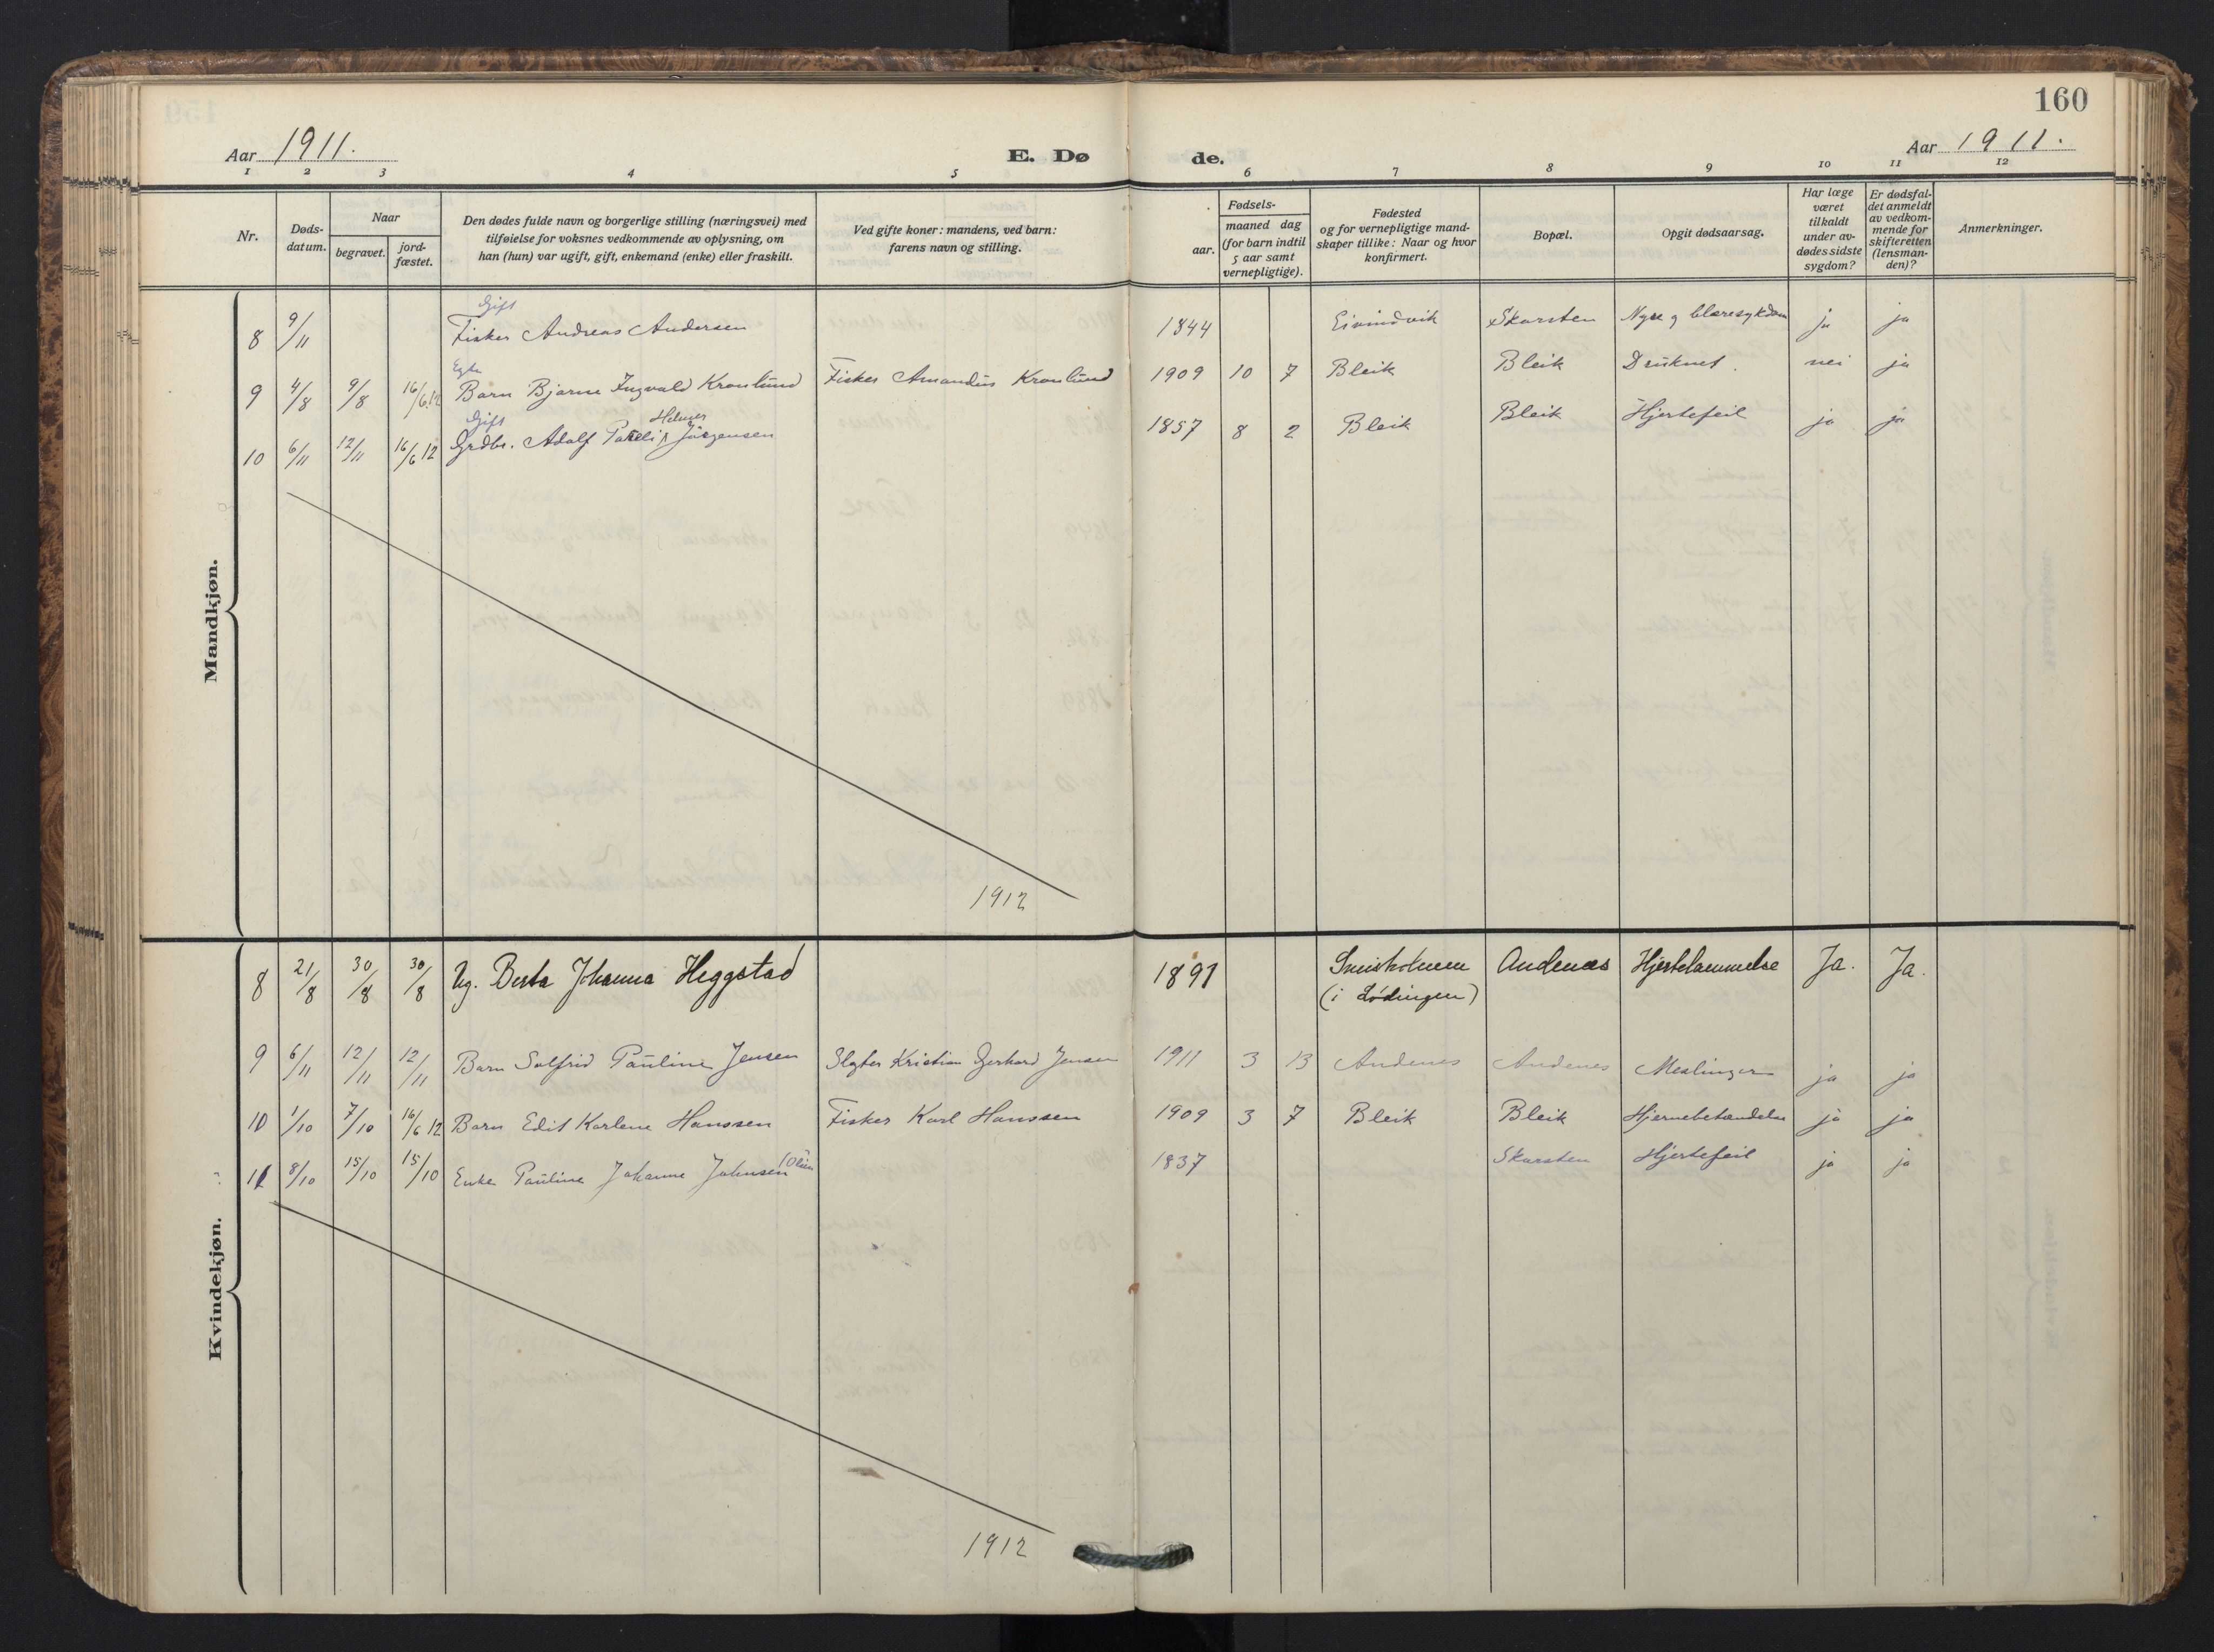 160
Aar 1911.
E. Dø
de.
Aar 1911.
1 2 3 4 5 6 7 8 9 10 11 12
Nr.
Døds-
datum.
Naar
begravet.
jord-
fæstet.
Den dødes fulde navn og borgerlige stilling (næringsvei) med
tilføielse for voksnes vedkommende av oplysning, om
han (hun) var ugift, gift, enkemand (enke) eller fraskilt.
Ved gifte koner: mandens, ved barn:
farens navn og stilling.
Fødsels-
aar.
maaned dag
(for barn indtil
5 aar samt
vernepligtige).
Fødested
og for vernepligtige mand-
skaper tillike: Naar og hvor
konfirmert.
Bopæl.
Opgit dødsaarsag.
Har læge
været
tilkaldt
under av-
dødes sidste
sygdom?
Er dødsfal-
det anmeldt
av vedkom-
mende for
skifteretten
(lensman-
den)?
Anmerkninger.
Mandkjøn.
Gift
8 9/11 Fisker Andreas Andersen 1844 Eivindvik Skarsten Nyre og blæresykdom ja ja
Egte
9 4/8 9/8 16/6.12 Barn Bjarne Ingvald Kronlund Fisker Amandus Kronlund 1909 10 7 Bleik Bleik Druknet. nei ja
Gift Helmer
10 6/11 12/11 16/6 12 Grdbr. Adolf Jørgensen 1857 8 2 Bleik Bleik Hjertefeil ja ja
1912
Kvindekjøn.
8 21/8 30/8 30/8 Ug. Berta Johanna Heggstad 1891 Andenes Hjertelammelse Ja. Ja.
(i Lødingen)
9 6/11 12/11 12/11 Barn Solfrid Pauline Jensen Slagter Kristian Gerhard Jensen 1911 3 13 Andenes Andenes Meslinger ja ja
10 1/10 7/10 16/6 12 Barn Edit Karlene Hanssen Fisker Karl Hanssen 1909 3 7 Bleik Bleik Hjernebetændelse ja ja
11 8/10 15/10 15/10 Enke Pauline Johanne Johnsen 1837 Skarsten Hjertefeil ja ja
1912